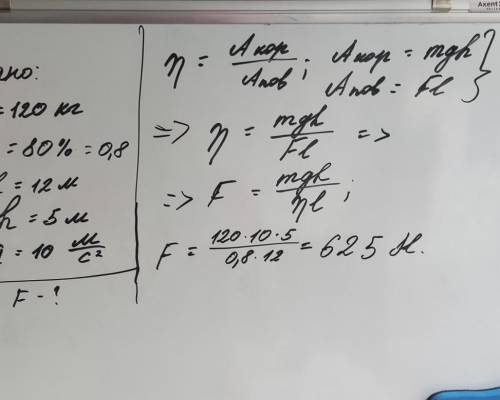 ано:
= 120 кг
= 80% = 0,8
= 12 м
h = 5 м
= 10 м/с²
F - ?
η = Aкор/Aпов ; Aкор = mgh }
Aпов = Fl
=> η = mgh/Fl =>
=> F = mgh/ηl ;
F = 120·10·5/0,8·12 = 625 Н.
Axent